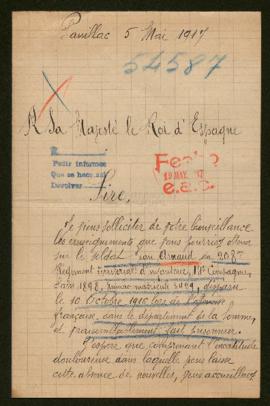 Pauillac 5 Mai 1917
54587
A Sa Majesté le Roi d'Espagne
Pedir informes
Que se hace
Devolver
19 MAY. 17
e.a.c.
Sire,
Je viens solliciter de votre bienveillance
les renseignements que vous pourriez obtenir
sur le soldat Armand du 208e
Régiment d'infanterie, Compagnie,
classe 1898, numéro matricule disparu
le 10 Octobre 1916 lors de
française, dans le département de la Somme,
et vraisemblablement fait prisonnier.
J'espère que comprenant l'incertitude
douloureuse dans laquelle nous laisse
cette absence de nouvelles, vous accueillerez